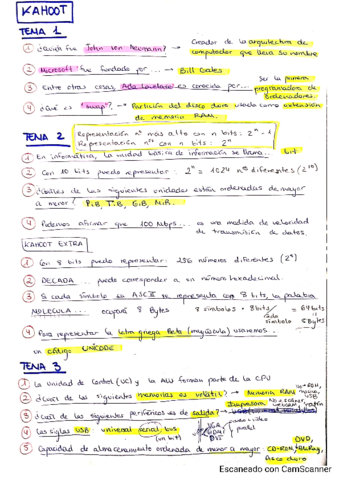 KAHOOT
TEMA 1
① ¿Quién fue John von Neumann? → Creador de la arquitectura de
computador que lleva su nombre
② Microsoft fue fundado por ... → Bill Gates
③ Entre otras cosas Ada Lovelace es conocida por ... Ser la primera
programadora de
ordenadores.
④ ¿Qué es "swap"? → Partición del disco duro usada como extensión
de memoria RAM.
TEMA 2
Representación nº más alto con n bits: 2ⁿ - 1
Representación nºs con n bits: 2ⁿ
① En informática, la unidad básica de información se llama... bit
② Con 10 bits puedo representar: 2ⁿ = 1024 nºs diferentes (2¹⁰)
③ ¿Cuáles de las siguientes unidades están ordenadas de mayor
a menor? PiB, TiB, GiB, MiB.
④ Podemos afirmar que 100 Mbps... es una medida de velocidad
de transmisión de datos.
KAHOOT EXTRA
① Con 8 bits puedo representar: 256 números diferentes (2⁸)
② DECADA ... puede corresponder a un número hexadecimal.
③ Si cada símbolo en ASCII se representa con 8 bits, la palabra
MOLECULA ... ocupará 8 Bytes 8 símbolos · 8 bits/cada símbolo = 64 bits
8 Bytes
④ Para representar la letra griega Beta (mayúscula) usaremos
un código UNICODE
TEMA 3
① La unidad de Control (UC) y la ALU forman parte de la CPU
② ¿Cuál de las siguientes memorias es volátil? → Memoria RAM
③ ¿Cuál de los siguientes periféricos es de salida? → Impresora
④ Las siglas USB universal serial bus
(un bit)
VGA
DVI
⑤ Capacidad de almacenamiento ordenada de menor a mayor CD-ROM, DVD, BluRay,
Disco duro
Escaneado con CamScanner